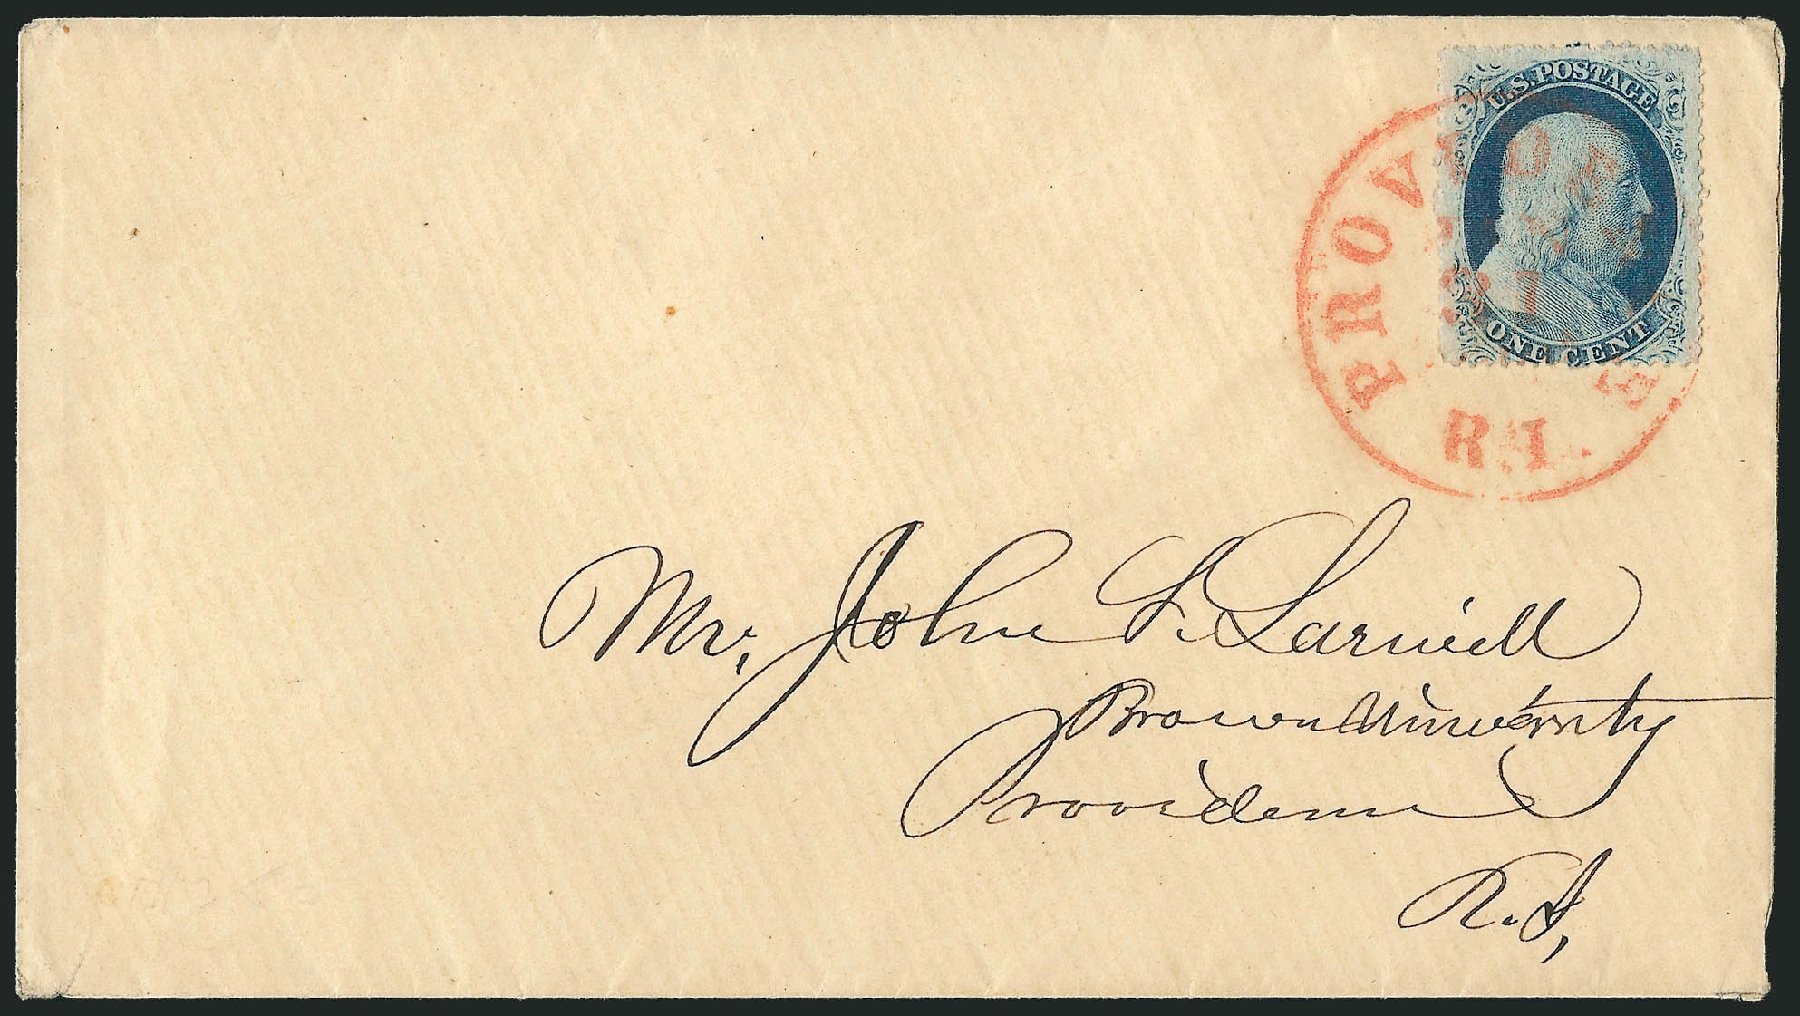 U.S. POSTAGE
ONE CENT
PROVIDE E
R.I.
Mr. John F.
Brown University
Providence
R.I.